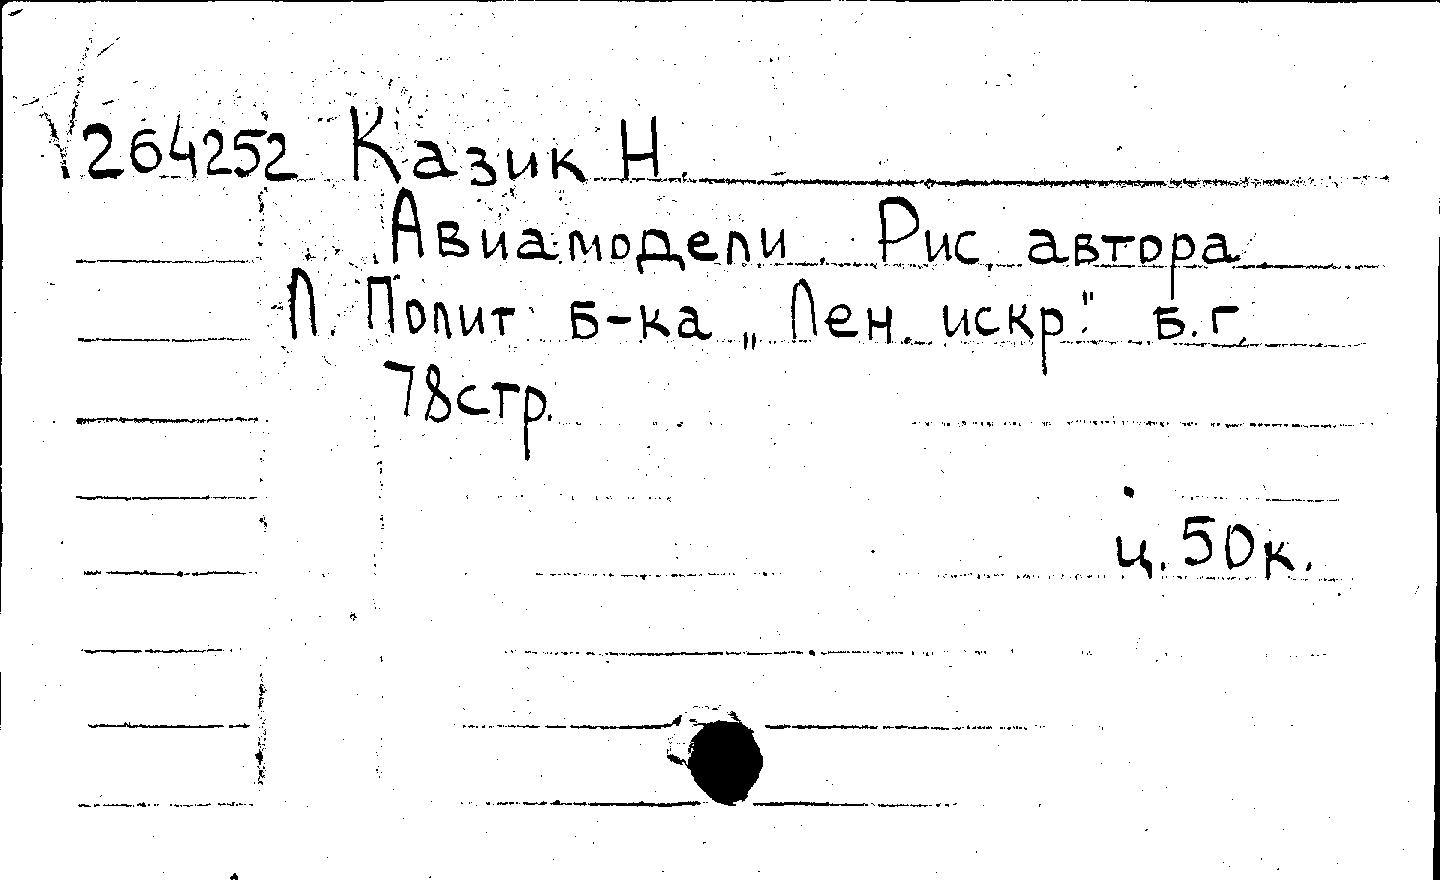 264252 Казик Н.
Авиамодели. Рис. автора.
Л. Полит б-ка „Лен. искр." б.г.
78стр.
ц. 50к.